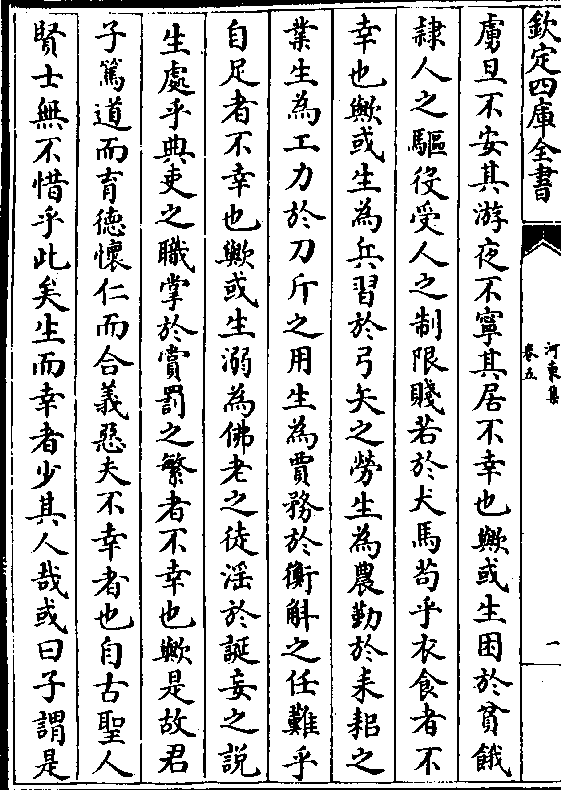 欽定四庫全書
河東集
卷五
一
虜旦不安其游夜不寧其居不幸也歟或生困於貧餓
隷人之驅役受人之制限賤若於犬馬苟乎衣食者不
幸也歟或生為兵習於弓矢之勞生為農勤於耒耜之
業生為工力於刀斤之用生為賈務於衡斛之任難乎
自足者不幸也歟或生溺為佛老之徒淫於誕妄之説
生處乎典吏之職掌於賞罰之繁者不幸也歟是故君
子篤道而育德懷仁而合義惡夫不幸者也自古聖人
賢士無不惜乎此矣生而幸者少其人哉或曰子謂是